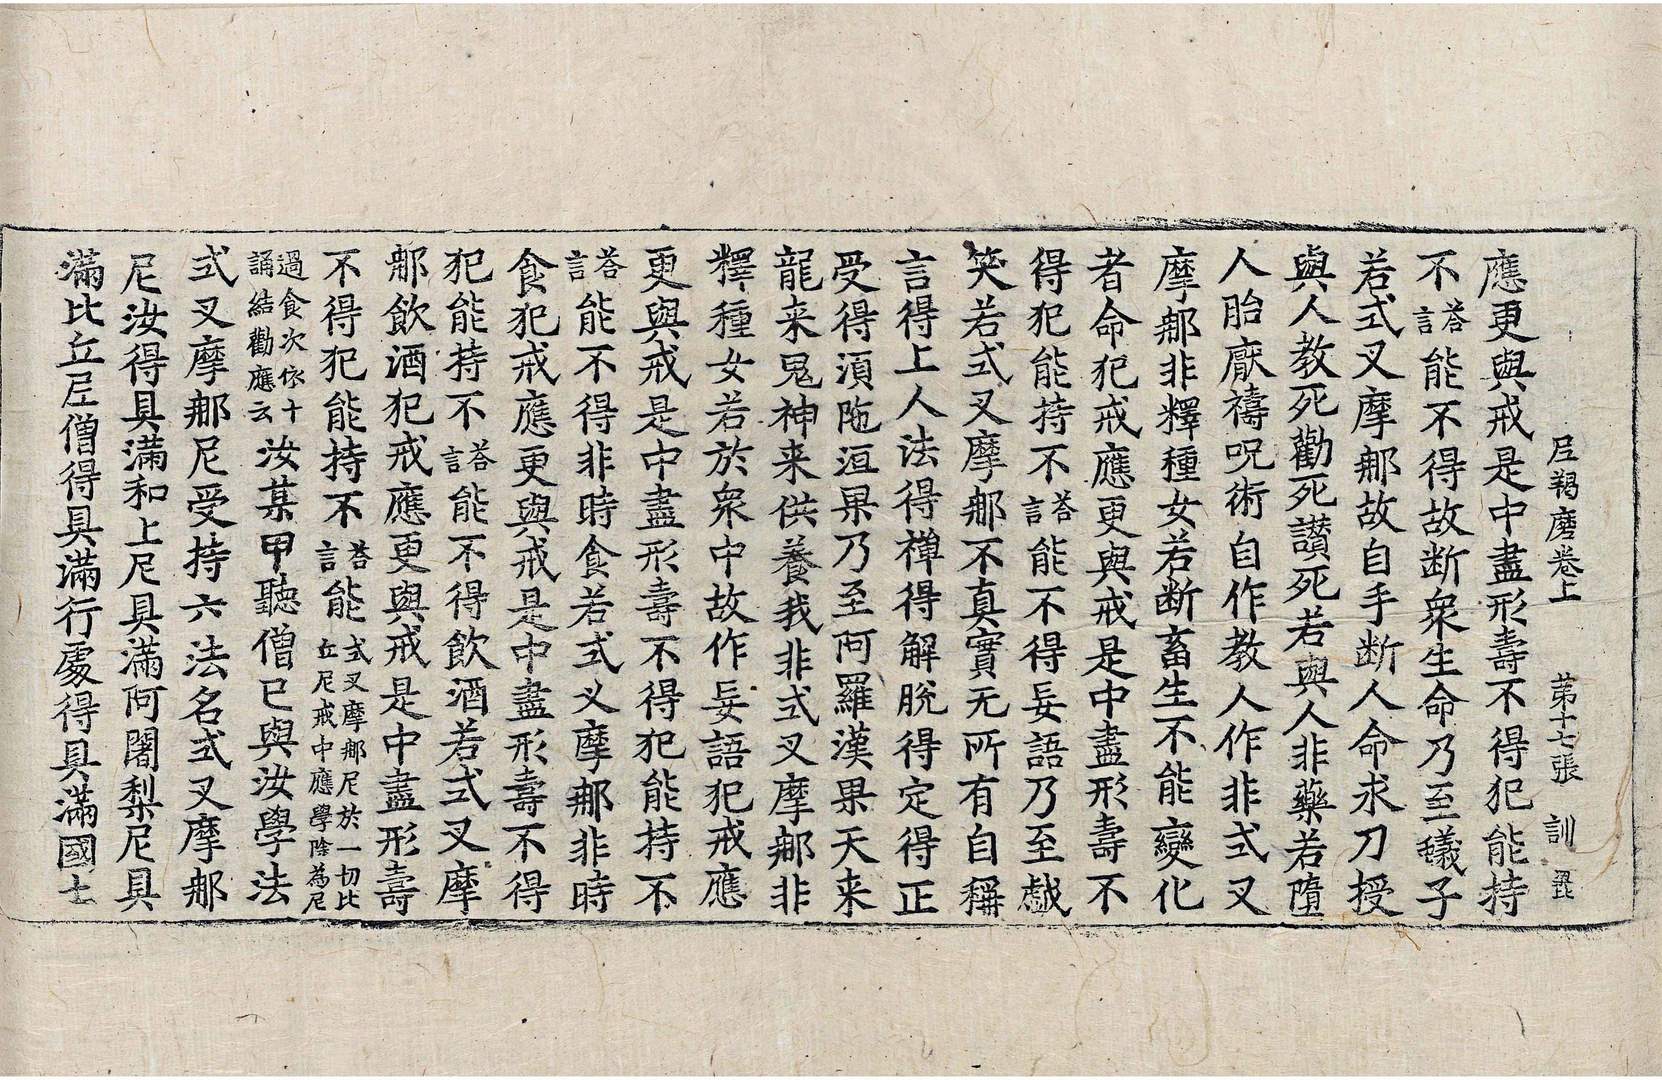 尼羯磨卷上 第十七張 訓
應更與戒是中盡形壽不得犯能持
不答言能不得故断衆生命乃至蟻子
若式叉摩那故自手断人命求刀授
與人教死勸死讃死若與人非藥若墮
人胎厭禱呪術自作教人作非式叉
摩那非釋種女若断畜生不能變化
者命犯戒應更與戒是中盡形壽不
得犯能持不答言能不得妄語乃至戯
笑若式叉摩那不真實无所有自稱
言得上人法得禪得解脫得定得正
受得湏陁洹果乃至阿羅漢果天来
龍来鬼神来供養我非式叉摩那非
釋種女若於衆中故作妄語犯戒應
更與戒是中盡形壽不得犯能持不
答言能不得非時食若式叉摩那非時
食犯戒應更與戒是中盡形壽不得
犯能持不答言能不得飲酒若式叉摩
那飲酒犯戒應更與戒是中盡形壽
不得犯能持不答言能式叉摩那尼於一切比丘尼戒中應學除為尼
過食次依十誦結勸應云汝某甲聽僧已與汝學法
式叉摩那尼受持六法名式叉摩那
尼汝得具滿和上尼具滿阿闍梨尼具
滿比丘尼僧得具滿行處得具滿國土